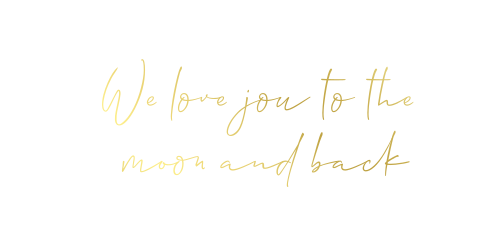 We love you to the
moon and back